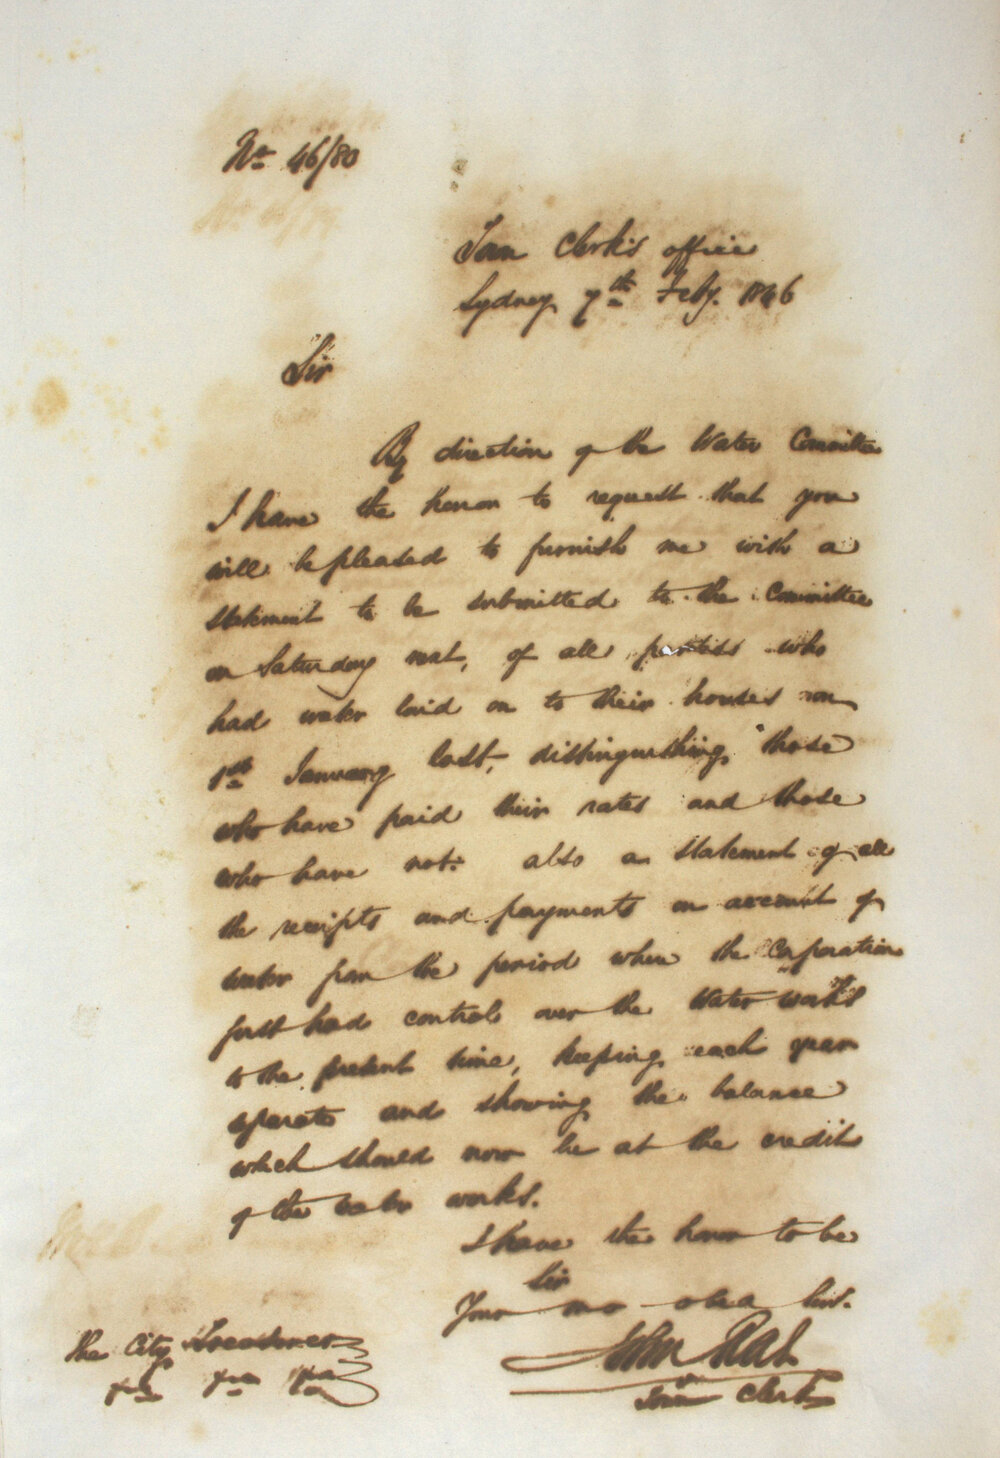 No. 46/80
Town Clerk's office
Sydney 7th Feby. 1846
Sir
By direction of the Water Committee
I have the honor to request that you
will be pleased to furnish me with a
statement to be submitted to the Committee
on Saturday next, of all parties who
had water laid on to their houses on
1st January last, distinguishing those
who have paid their rates and those
who have not: also a statement of all
the receipts and payments on account of
water from the period when the Corporation
first had control over the Water Works
to the present time, keeping each year
separate and showing the balance
which should now be at the credit
of the water works.
I have the honor to be
Sir
Your mo obed Servt.
John Rae
Town Clerk
The City Treasurer